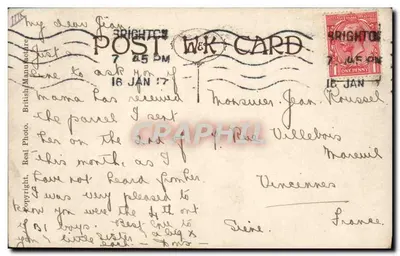 My dear Jean
BRIGHTON
7 45 PM
16 JAN 17
POST W&K CARD
BRIGHTON
7 45 PM
16 JAN 17
ONE PENNY
Just
to ask you if
mama has received
the parcel I sent
her on the 2nd of
this month, as I
have not heard from her
I was very pleased to
know you were the 4th out
of 31 boys. Best love to
you, & little sister, a big x
each
Monsieur Jean Roussel
Rue Villebois
Mareuil
Vincennes
Seine. France.
Copyright. Real Photo. British Manufacture
CRAPHIL